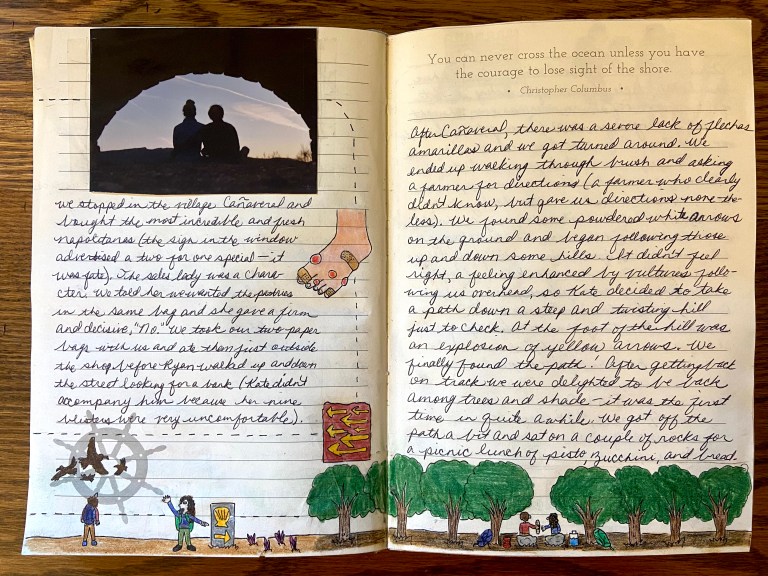 we stopped in the village Cañaveral and
bought the most incredible and fresh
napolitanas (the sign in the window
advertised a two for one special – it
was fate). The sales lady was a chara-
cter. We told her we wanted the pastries
in the same bag and she gave a firm
and decisive, "No." We took our two paper
bags with us and ate them just outside
the shop before Ryan walked up and down
the street looking for a bank (Kate didn't
accompany him because her nine
blisters were very uncomfortable).
You can never cross the ocean unless you have
the courage to lose sight of the shore.
• Christopher Columbus •
After Cañaveral, there was a severe lack of flechas
amarillas and we got turned around. We
ended up walking through brush and asking
a farmer for directions (a farmer who clearly
didn't know, but gave us directions none-the-
less). We found some powdered white arrows
on the ground and began following those
up and down some hills. It didn't feel
right, a feeling enhanced by vultures follo-
wing us overhead, so Kate decided to take
a path down a steep and twisting hill
just to check. At the foot of the hill was
an explosion of yellow arrows. We
finally found the path! After getting back
on track we were delighted to be back
among trees and shade – it was the first
time in quite awhile. We got off the
path a bit and sat on a couple of rocks for
a picnic lunch of pisto, zucchini, and bread.